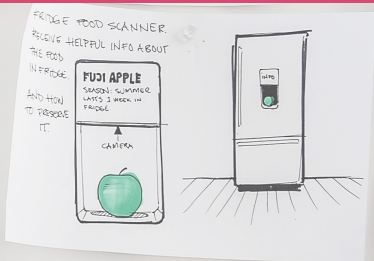 FRIDGE FOOD SCANNER.
RECEIVE HELPFUL INFO ABOUT
THE FOOD
IN FRIDGE.
AND HOW
TO PRESERVE
IT.
FUJI APPLE
SEASON: SUMMER
LASTS 1 WEEK IN
FRIDGE
CAMERA
INFO